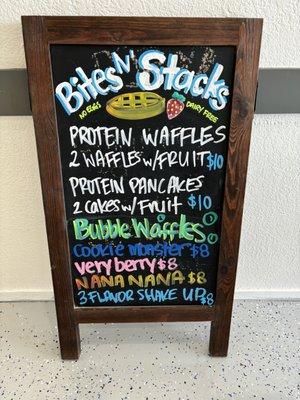 Bites n' Stacks
No EGGS
DAIRY FREE
PROTEIN WAFFLES
2 WAFFLES w/FRUIT $10
PROTEIN PANCAKES
2 CAKES w/ Fruit $10
Bubble Waffles
COOKIE MONSTER $8
very berry $8
NANA NANA $8
3 FLAVOR SHAKE UP $8